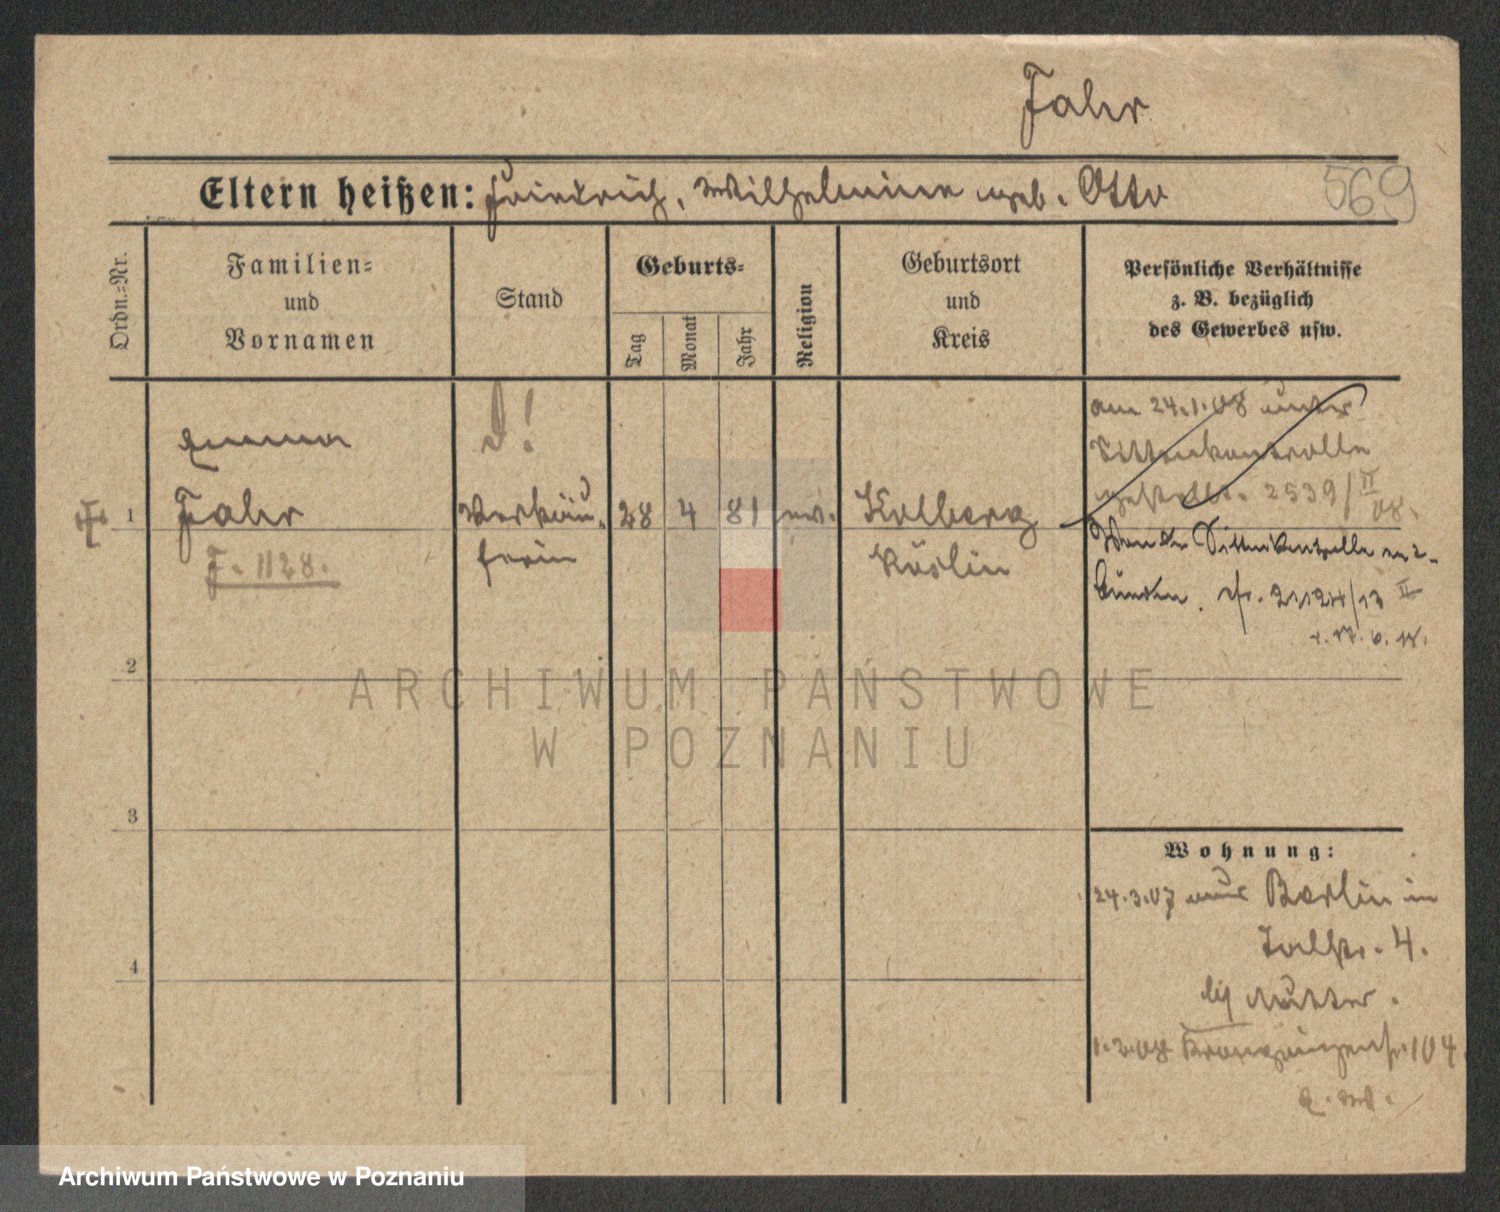 Fahr
Eltern heißen: Friedrich, Wilhelmine geb. Otto
569
Ordn.=Nr.
Familien=
und
Vornamen
Stand
Geburts=
Tag
Monat
Jahr
Religion
Geburtsort
und
Kreis
Persönliche Verhältnisse
z. B. bezüglich
des Gewerbes usw.
Emma
Fahr
F. 1128.
Verkäu-
ferin
28 4 81 ev.
Kolberg
Köslin
am 24.1.08 unter
Sittenkontrolle
gestellt. 2539/II
08.
Von der Sittenkontrolle ent-
bunden.
1
2
3
4
Wohnung:
24.3.07 aus Berlin in
4.
bei Mutter.
1.2.08 Kronprinzenstr. 104
ARCHIWUM PAŃSTWOWE
W POZNANIU
Archiwum Państwowe w Poznaniu